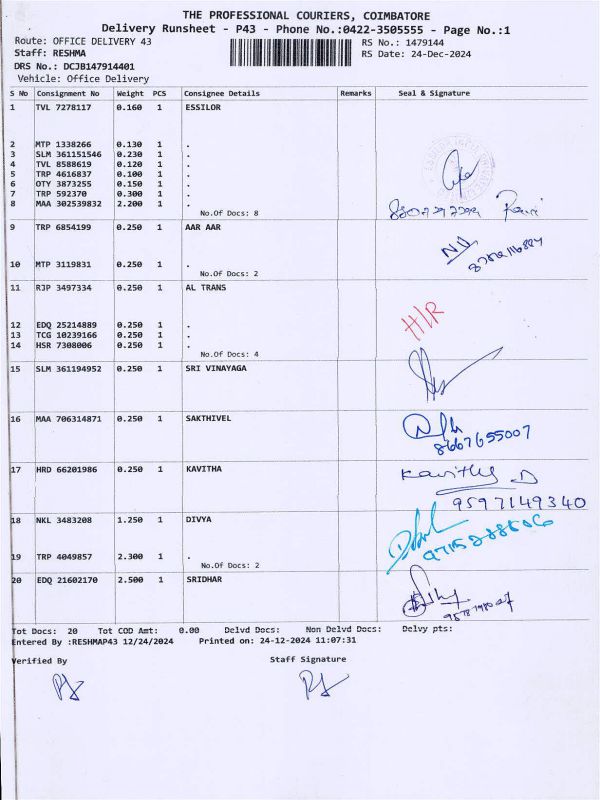 THE PROFESSIONAL COURIERS, COIMBATORE
Delivery Runsheet - P43 - Phone No.:0422-3505555 - Page No.:1
Route: OFFICE DELIVERY 43 RS No.: 1479144
Staff: RESHMA RS Date: 24-Dec-2024
DRS No.: DCJB147914401
Vehicle: Office Delivery
S No Consignment No Weight PCS Consignee Details Remarks Seal & Signature
1 TVL 7278117 0.160 1 ESSILOR
2 MTP 1338266 0.130 1 .
3 SLM 361151546 0.230 1 .
4 TVL 8588619 0.120 1 .
5 TRP 4616837 0.100 1 .
6 OTY 3873255 0.150 1 .
7 TRP 592370 0.300 1 .
8 MAA 302539832 2.200 1 .
No.Of Docs: 8
9 TRP 6854199 0.250 1 AAR AAR
10 MTP 3119831 0.250 1 .
No.Of Docs: 2
11 RJP 3497334 0.250 1 AL TRANS
H/R
12 EDQ 25214889 0.250 1 .
13 TCG 10239166 0.250 1 .
14 HSR 7308006 0.250 1 .
No.Of Docs: 4
15 SLM 361194952 0.250 1 SRI VINAYAGA
16 MAA 706314871 0.250 1 SAKTHIVEL
8667655007
17 HRD 66201986 0.250 1 KAVITHA
Kavitha D
9597149340
18 NKL 3483208 1.250 1 DIVYA
19 TRP 4049857 2.300 1 .
No.Of Docs: 2
20 EDQ 21602170 2.500 1 SRIDHAR
Tot Docs: 20 Tot COD Amt: 0.00 Delvd Docs: Non Delvd Docs: Delvy pts:
Entered By :RESHMAP43 12/24/2024 Printed on: 24-12-2024 11:07:31
Verified By Staff Signature